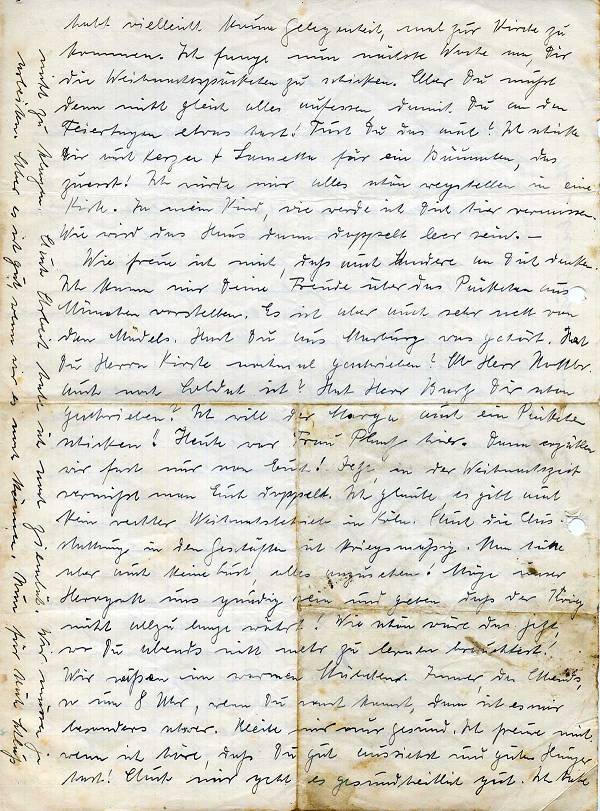 habt vielleicht keine Gelegenheit, mal zur Kirche zu
kommen. Ich fange nun nächste Woche an, Dir
die Weihnachtspäckchen zu schicken. Aber Du mußt
dann nicht gleich alles aufessen, damit Du an den
Feiertagen etwas hast! Tust Du das auch? Ich schicke
Dir auch Kerzen + Lametta für ein Bäumchen, das
zuerst! Ich würde mir alles schön wegstellen in eine
Kiste. Ja mein Kind, wie werde ich Dich hier vermissen.
Wie wird das Haus dann doppelt leer sein. –
Wie freue ich mich, daß auch Andere an Dich denken.
Ich kann mir Deine Freude über das Päckchen aus
München vorstellen. Es ist aber auch sehr nett von
den Mädels. Hast Du aus Marburg was gehört. Hat
Du Herrn Kirste nochmal geschrieben? Ob Herr
auch noch Soldat ist? Hat Herr Dir schon
geschrieben? Ich will der Marga auch ein Päckchen
schicken! Heute war Frau hier. Dann erzählen
wir fast nur von Euch! Jetzt, an der Weihnachtszeit
vermißt man Euch doppelt. Ich glaube es gibt auch
kein rechter Weihnachtsbetrieb in Köln. Auch die Aus-
stattung in den Geschäften ist kriegsmäßig. Man hätte
aber auch keine Lust, alles anzusehen! Möge unser
Herrgott uns gnädig sein und geben, daß der Krieg
nicht allzu lange währt! Wie schön wäre das jetzt,
wo Du abends nicht mehr zu lernen brauchtest!
Wir säßen im warmen Stübchen. Immer, des Abends,
so um 8 Uhr, wenn Du sonst kamst, dann ist es mir
besonders schwer. Bleibe mir nur gesund. Ich freue mich,
wenn ich höre, daß Du gut aussiehst und guten Hunger
hast! Auch mir geht es gesundheitlich gut. Ich habe
nicht zu klagen. Auch Arbeit habe ich noch ziemlich. Wir müssen ja
arbeiten. Aber es ist gut, wenn wir es noch können. Nun für heut Schluß